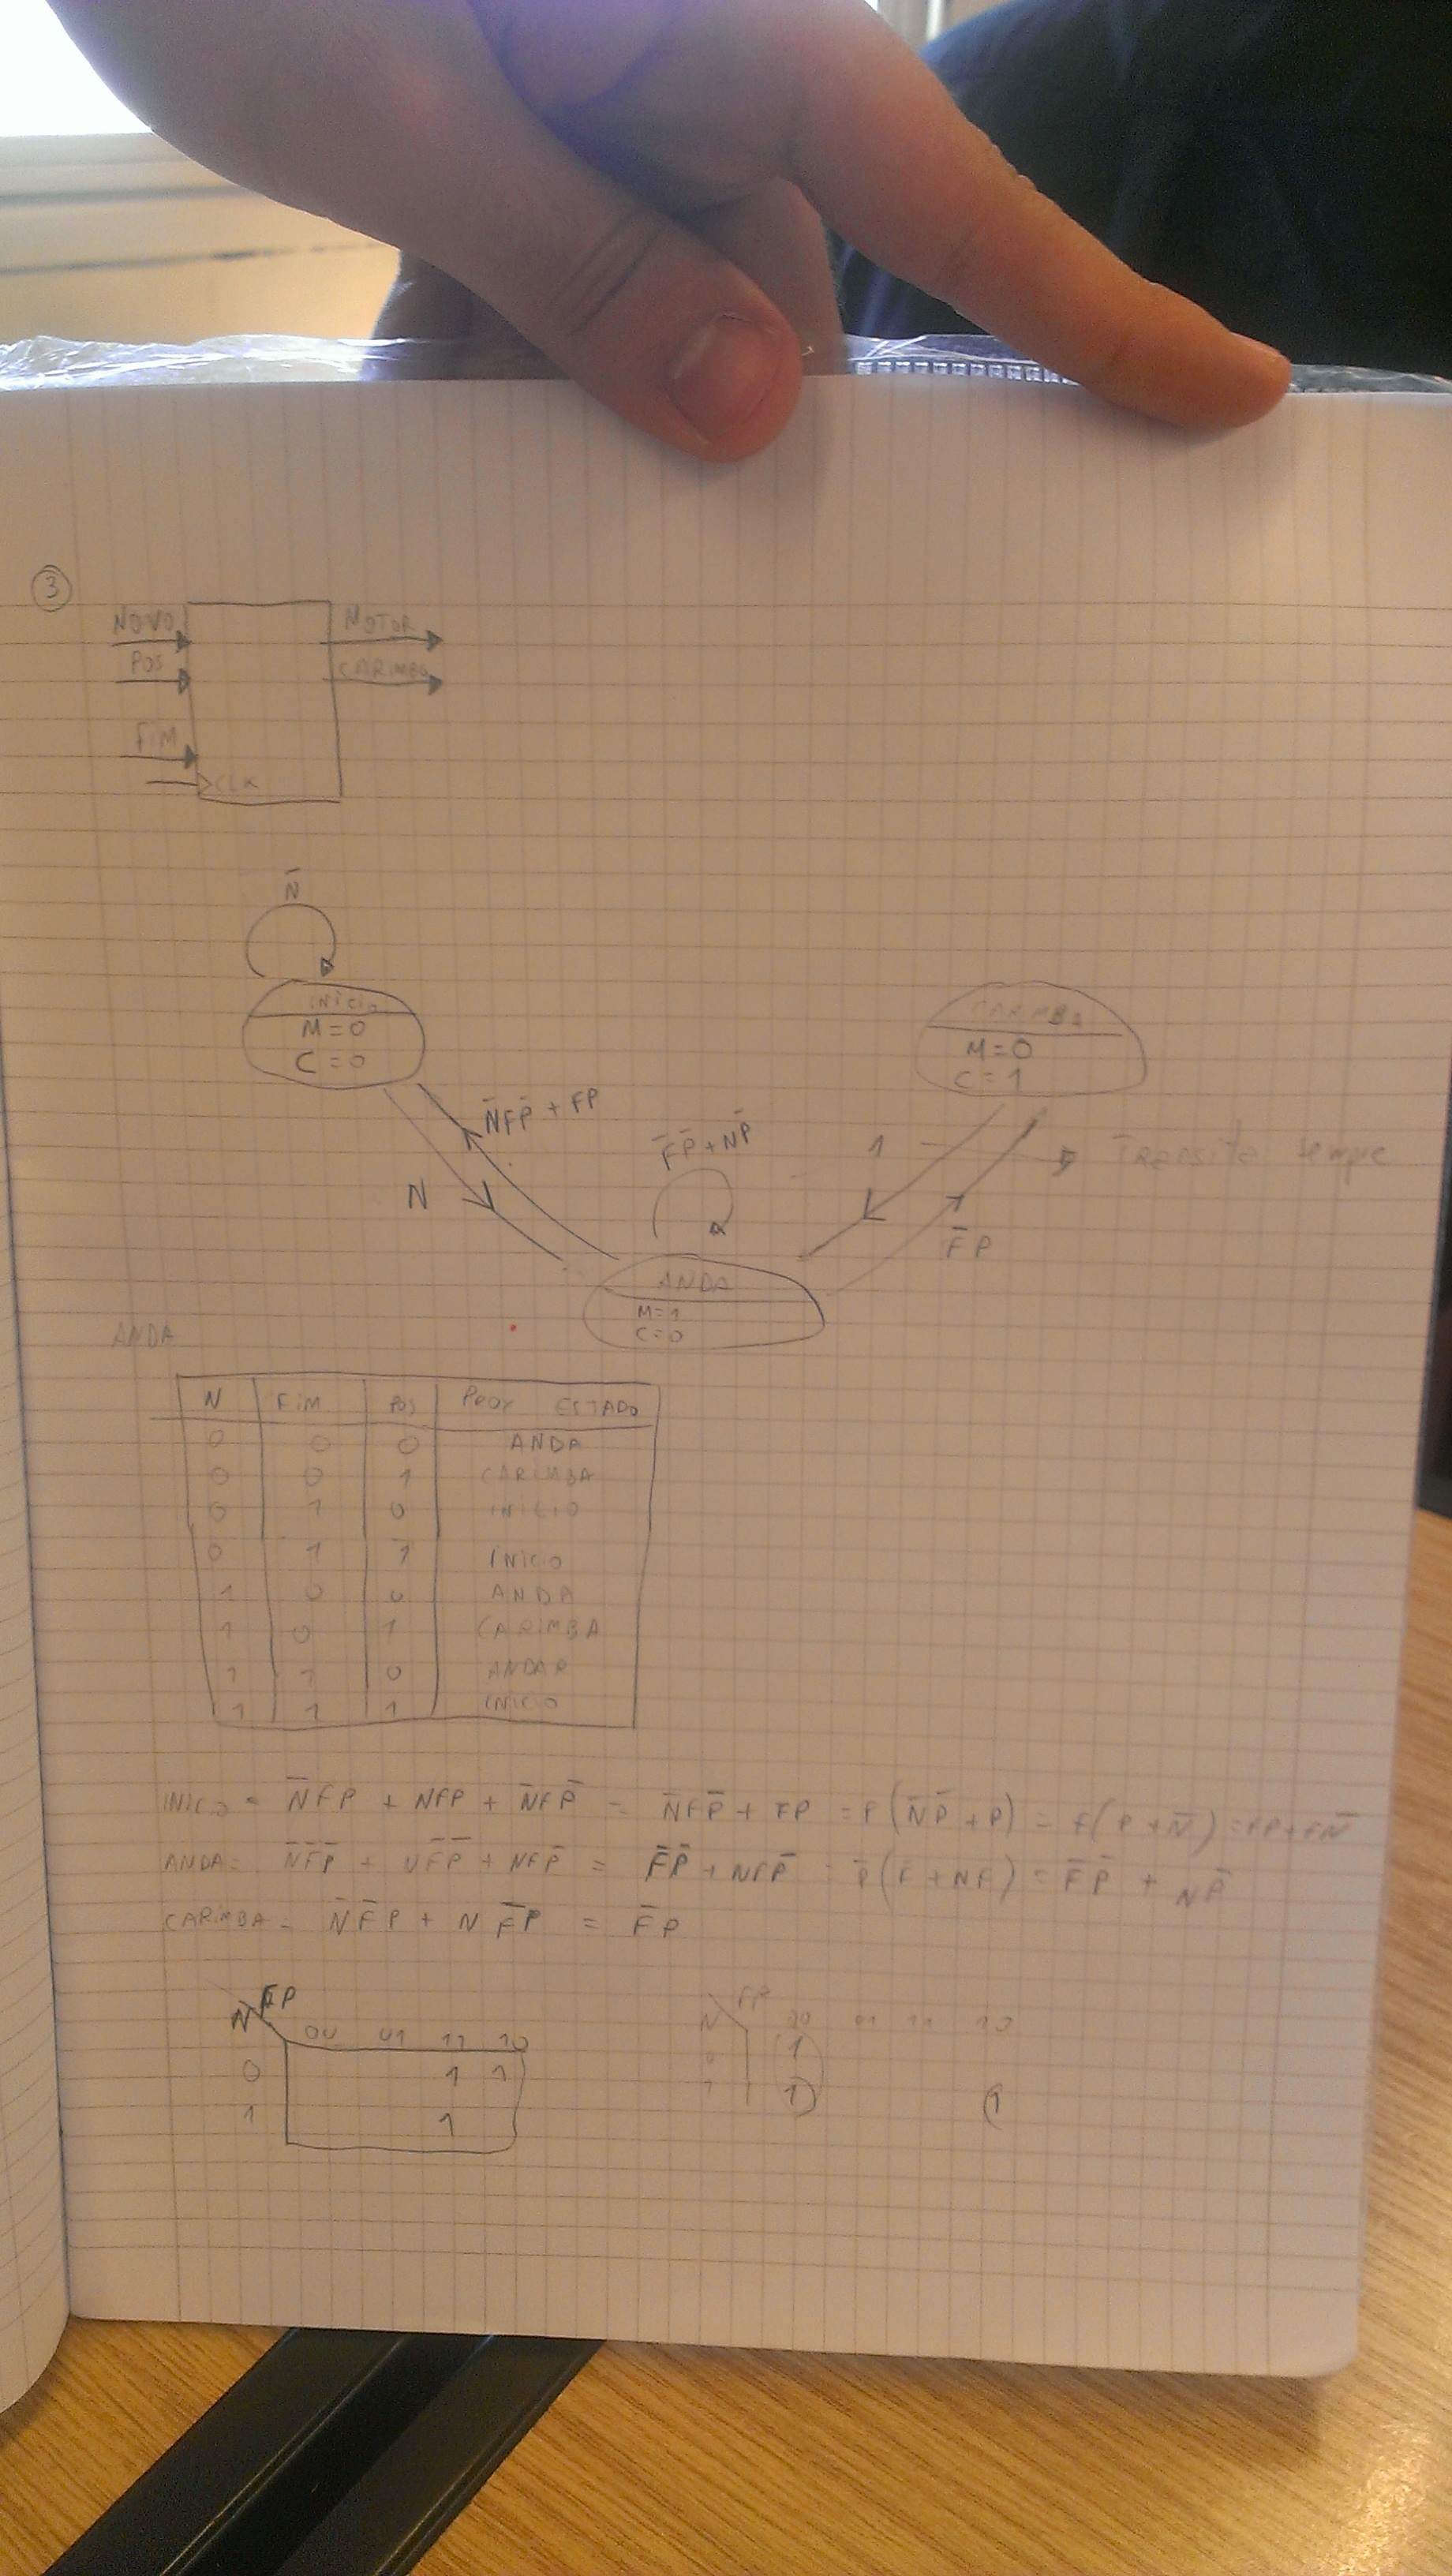 3
NOVO
MOTOR
POS
CARIMBO
FIM
CLK
N̄
INICIO
M=0
C=0
CARIMBA
M=0
C=1
N̄FP̄ + FP
N
F̄P̄ + NP̄
1
TRANSITA sempre
F̄P
ANDA
M=1
C=0
ANDA
N FIM POS PROX ESTADO
0 0 0 ANDA
0 0 1 CARIMBA
0 1 0 INICIO
0 1 1 INICIO
1 0 0 ANDA
1 0 1 CARIMBA
1 1 0 ANDAR
1 1 1 INICIO
INICIO = N̄FP + NFP + N̄FP̄ = N̄FP̄ + FP = F(N̄P̄ + P) = F(P + N̄) = FP + FN̄
ANDA = N̄F̄P̄ + NF̄P̄ + NFP̄ = F̄P̄ + NFP̄ = P̄(F̄ + NF) = F̄P̄ + NP̄
CARIMBA = N̄F̄P + NF̄P = F̄P
N FP 00 01 11 10
0 1 1
1 1
N FP 00 01 11 10
0 1
1 1 1